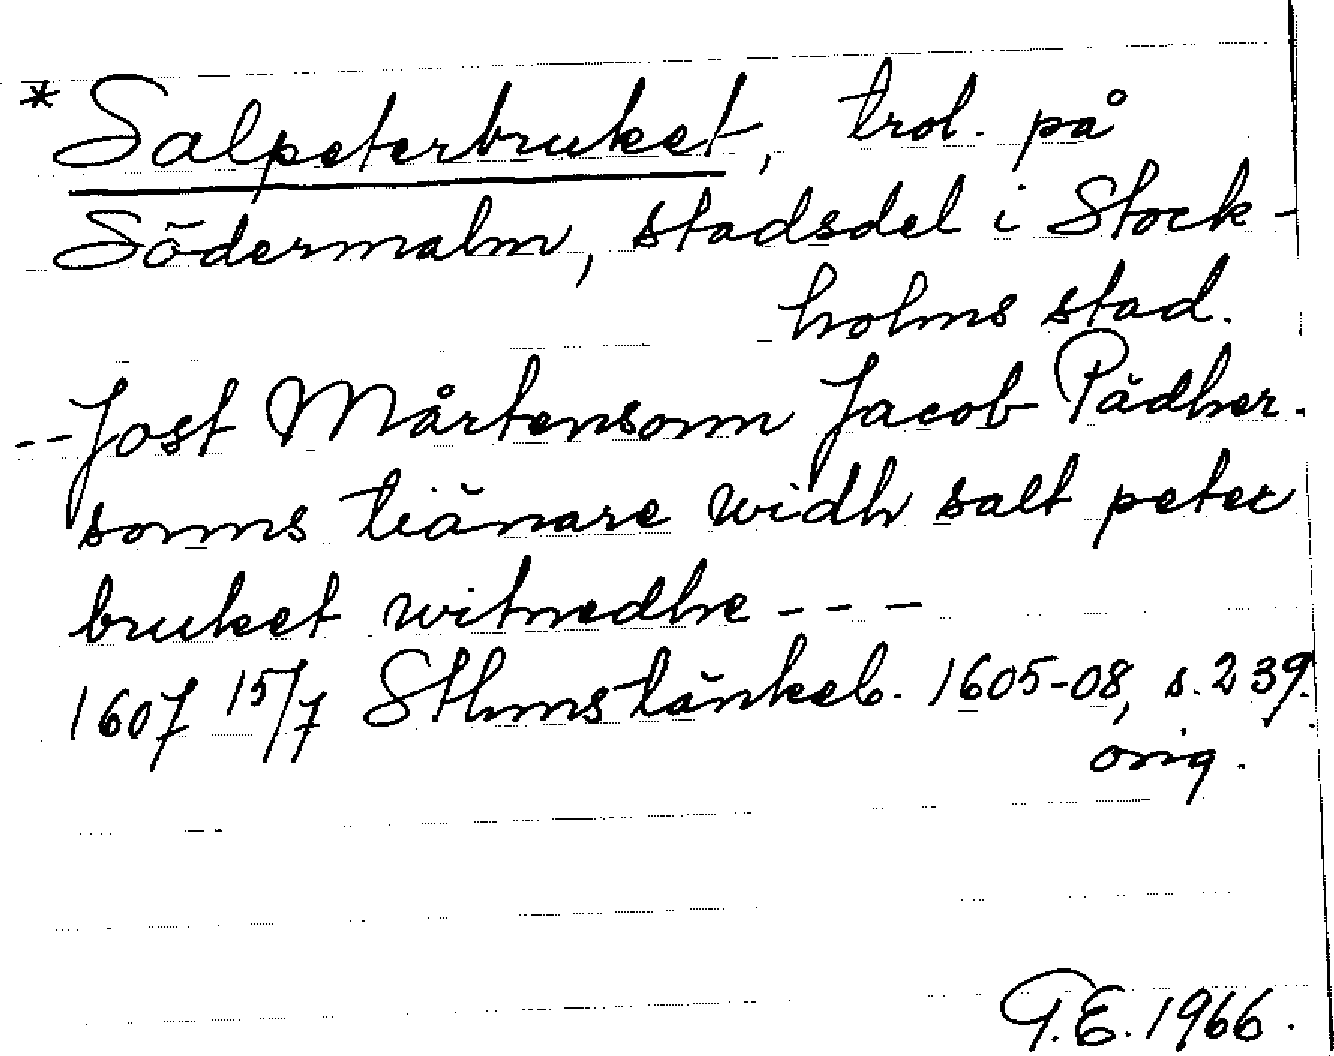 * Salpeterbruket, trol. på
Södermalm, stadsdel i Stock-
holms stad.
-- Jost Mårtensonn Jacob Pädher.
sonns tiänare widh salt peter
bruket witnedhe - - -
1607 15/7 Sthms tänkeb. 1605-08, s. 239.
orig.
G.E. 1966.